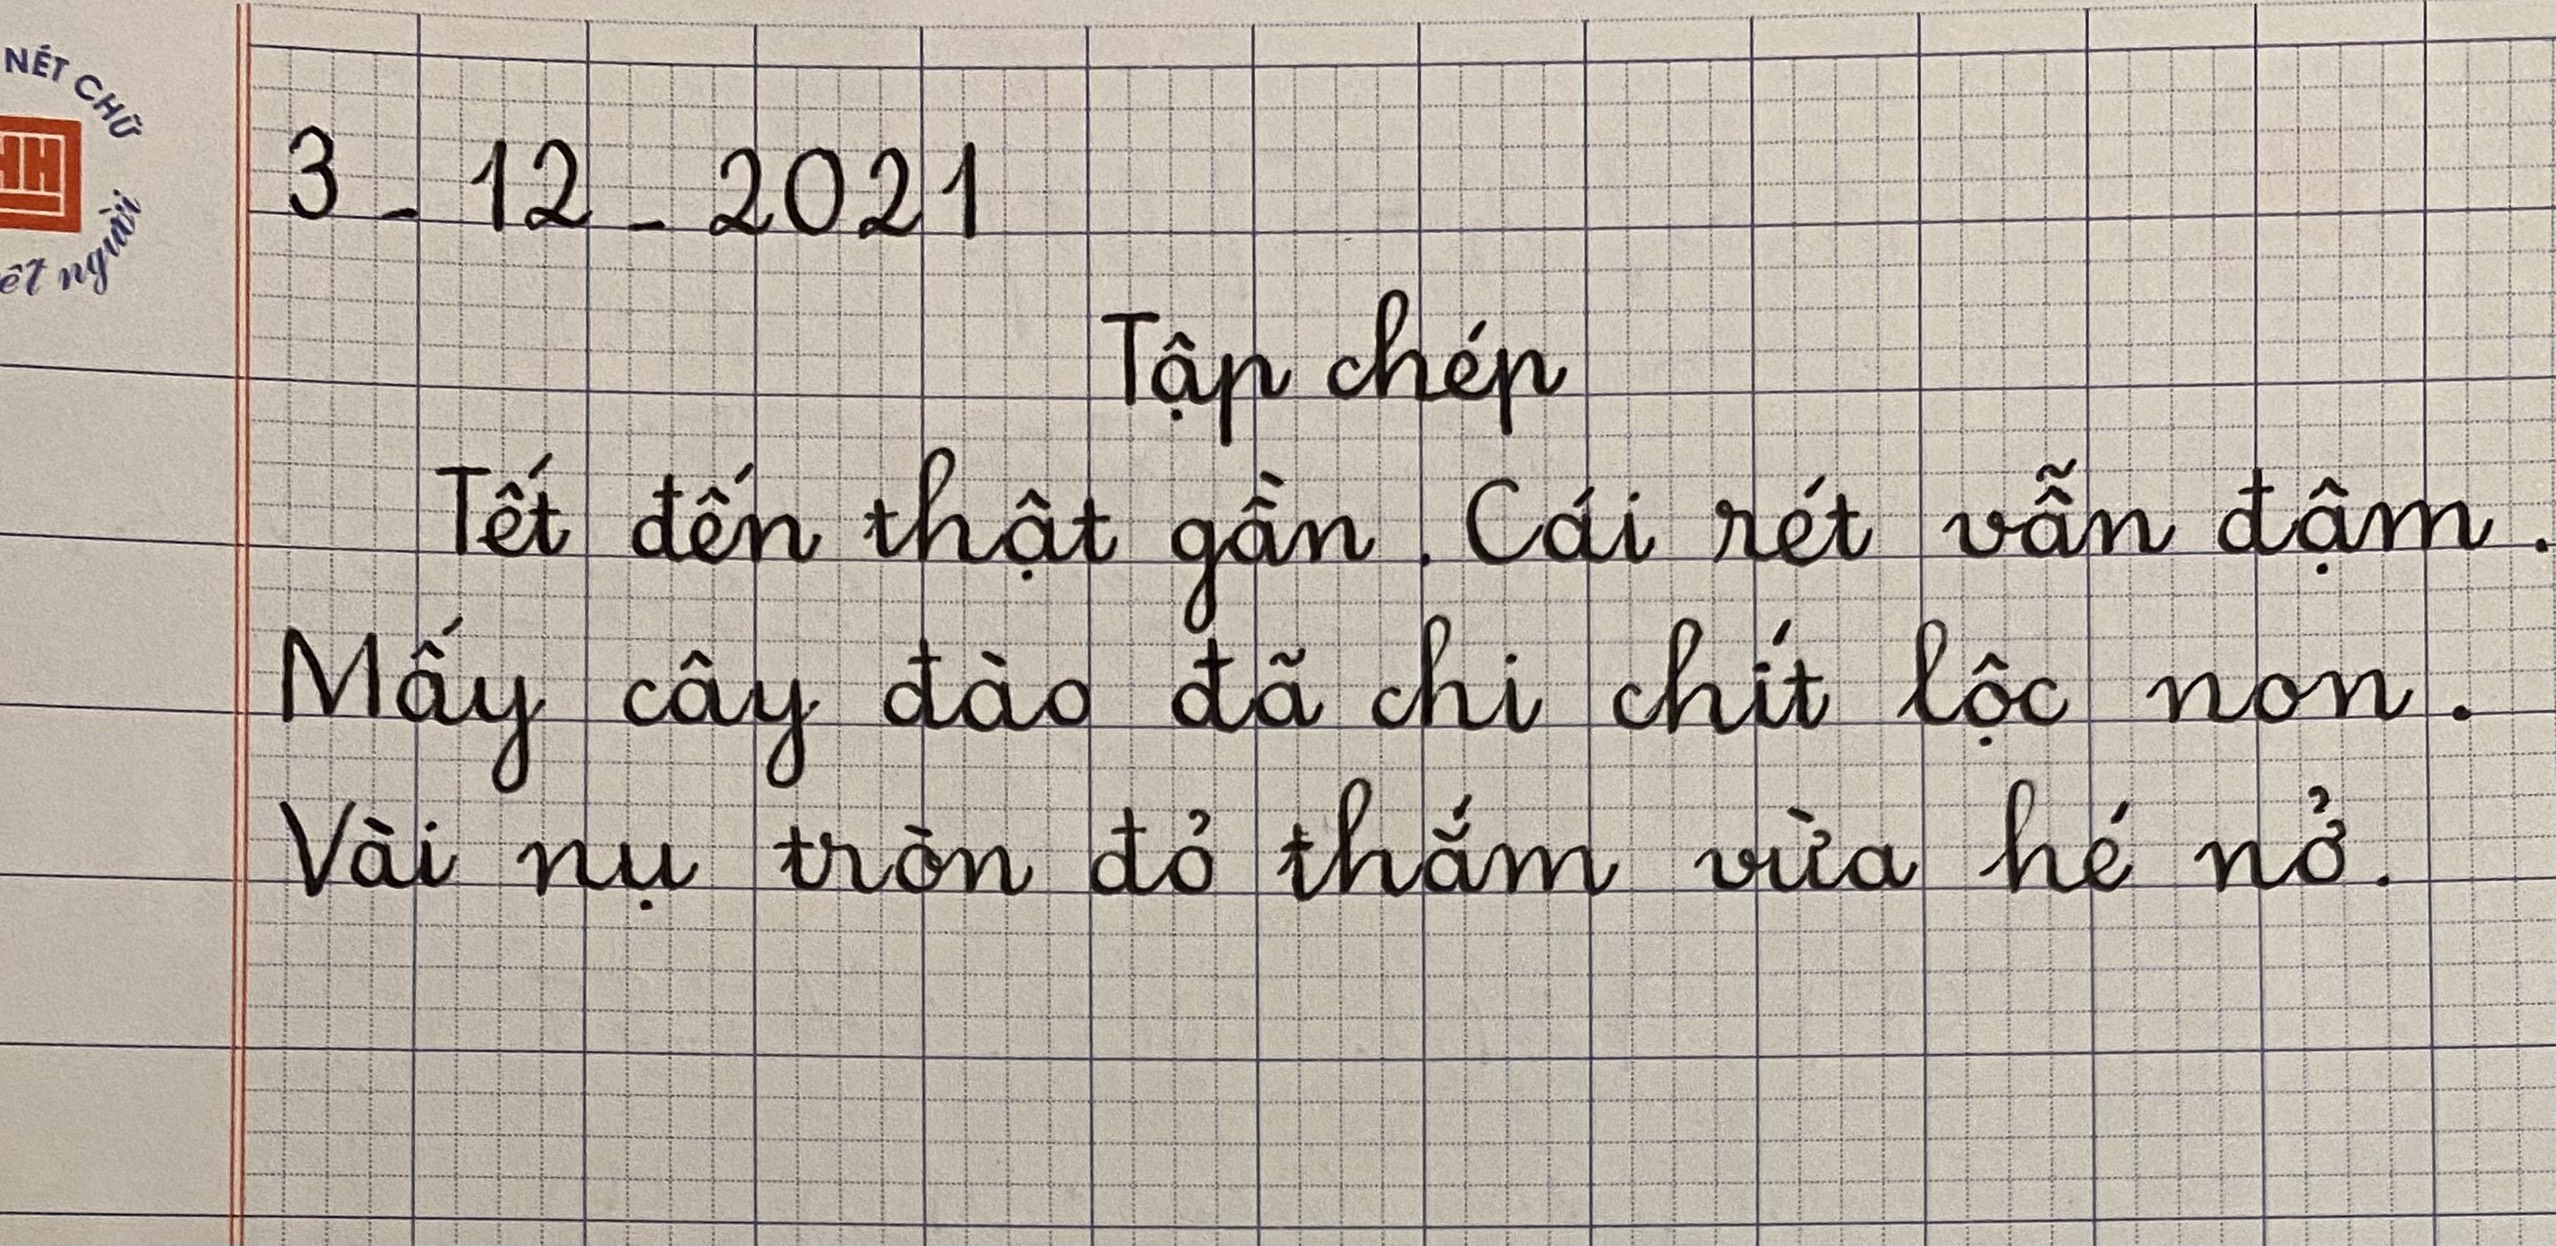 NÉT CHỮ
người
3 - 12 - 2021
Tập chép
Tết đến thật gần. Cái rét vẫn đậm.
Mấy cây đào đã chi chít lộc non.
Vài nụ tròn đỏ thắm vừa hé nở.